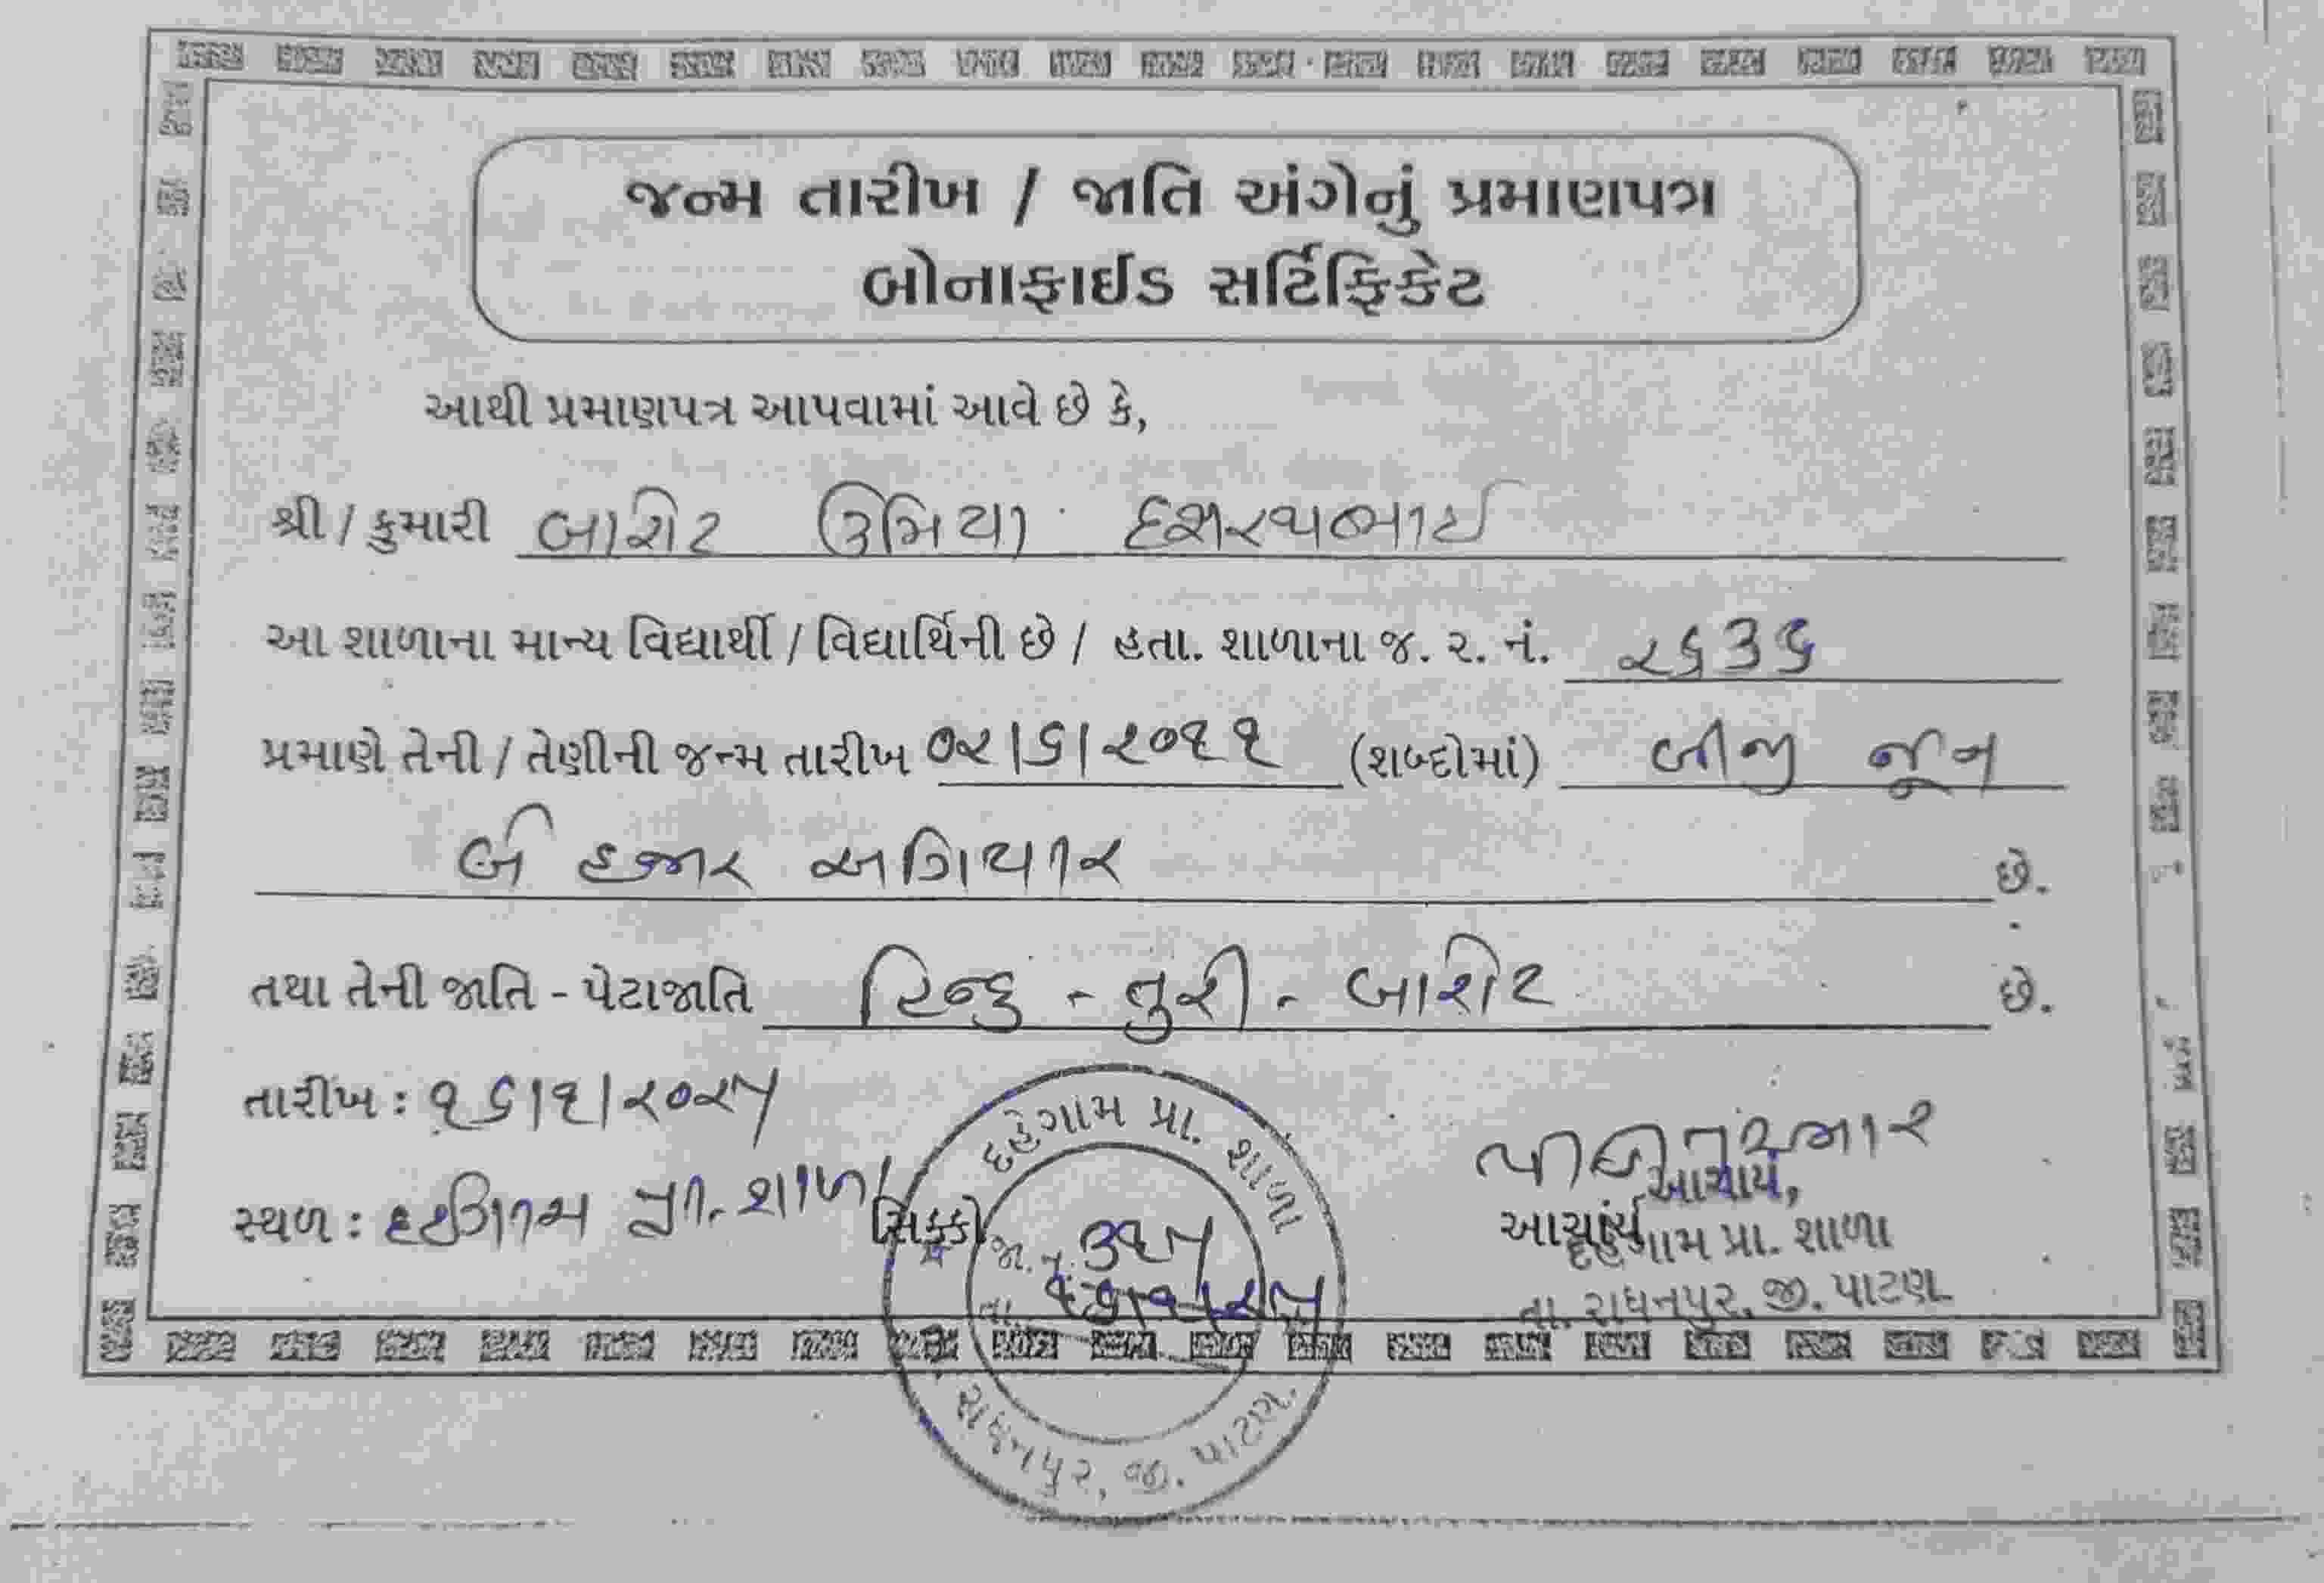 જન્મ તારીખ / જાતિ અંગેનું પ્રમાણપત્ર
બોનાફાઈડ સર્ટિફિકેટ
આથી પ્રમાણપત્ર આપવામાં આવે છે કે,
શ્રી / કુમારી બારોટ ઉમિયા દશરથભાઈ
આ શાળાના માન્ય વિદ્યાર્થી / વિદ્યાર્થિની છે / હતા. શાળાના જ. ર. નં. ૨૬૩૬
પ્રમાણે તેની / તેણીની જન્મ તારીખ ૦૨/૬/૨૦૧૧ (શબ્દોમાં) બીજી જૂન
બે હજાર અગિયાર છે.
તથા તેની જાતિ - પેટાજાતિ હિન્દુ - તુરી - બારોટ છે.
તારીખ : ૧૬/૧/૨૦૨૫
સ્થળ : દહેગામ પ્રા. શાળા
સિક્કો
દહેગામ પ્રા. શાળા
જા. નં. ૩૧૫
તા. ૧૬/૧/૨૫
રાધનપુર, જી. પાટણ.
આચાર્ય
આચાર્ય,
દહેગામ પ્રા. શાળા
તા. રાધનપુર, જી. પાટણ